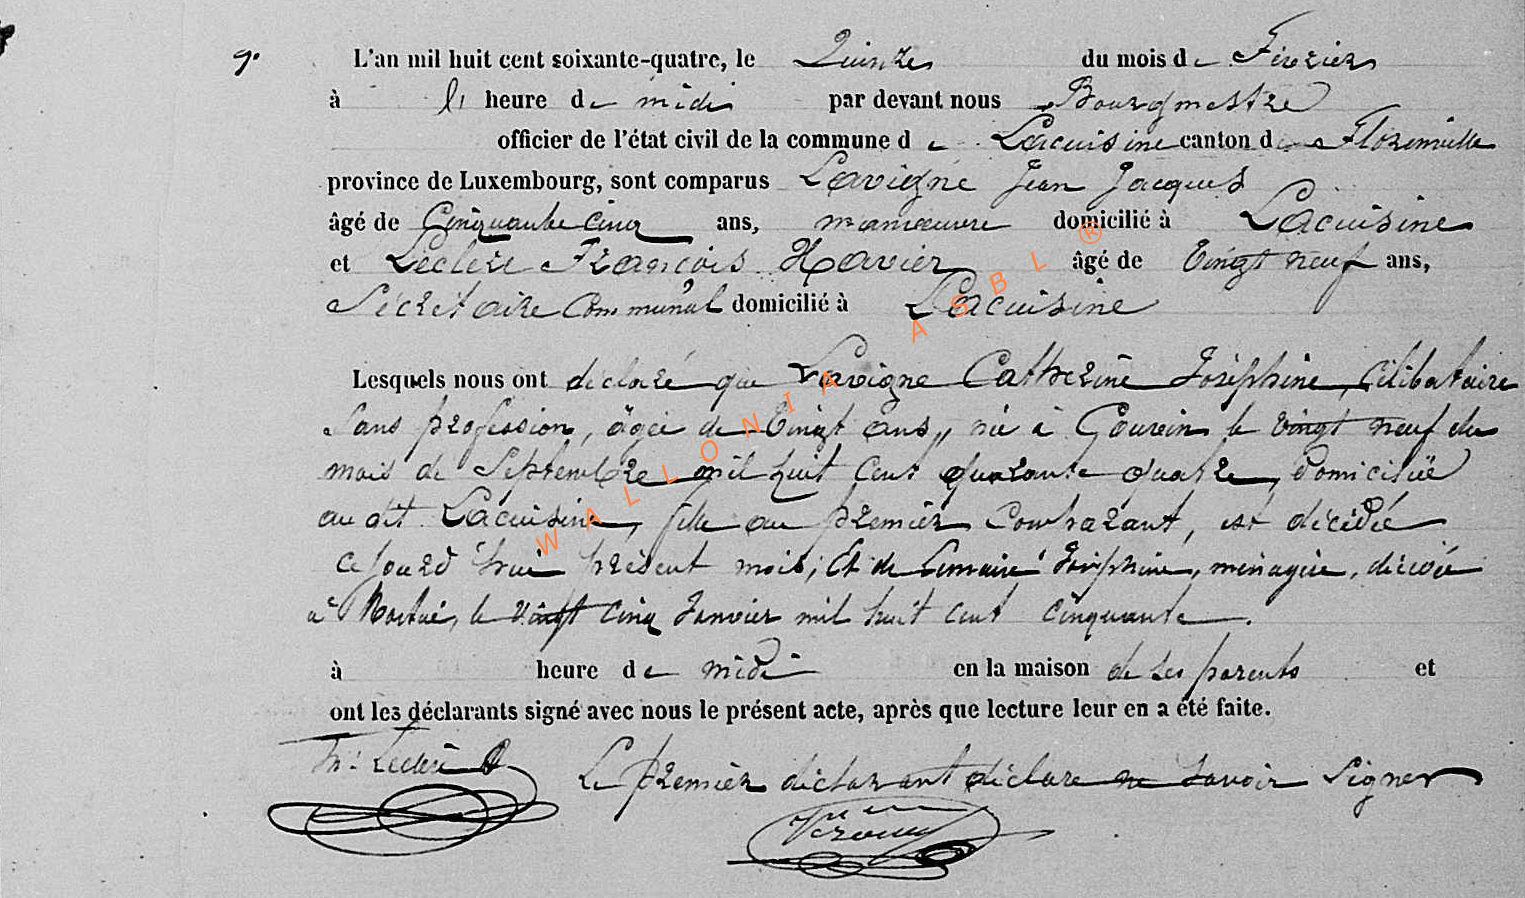 9. L'an mil huit cent soixante-quatre, le Quinze du mois de Février
à heure de midi par devant nous Bourgmestre
officier de l'état civil de la commune de Lacuisine canton de Florenville
province de Luxembourg, sont comparus Lavigne Jean Jacques
âgé de Cinquante cinq ans, manœuvre domicilié à Lacuisine
et Leclere François Xavier âgé de Vingt neuf ans,
Secretaire Communal domicilié à Lacuisine
Lesquels nous ont déclaré que Lavigne Catherine Joséphine, célibataire
Sans profession, âgée de Vingt ans, née à Gouvin le vingt neuf du
mois de Septembre mil huit cent quarante quatre, Domiciliée
au dit Lacuisine, fille au premier Comparant, est décédée
ce jourd'hui présent mois; Et de Lemaire Joséphine, ménagère, décédée
à le vingt cinq Janvier mil huit cent cinquante.
à heure de midi en la maison de ses parents et
ont les déclarants signé avec nous le présent acte, après que lecture leur en a été faite.
Leclere Le premier déclarant déclare ne savoir Signer
WALLONIA ASBL ®